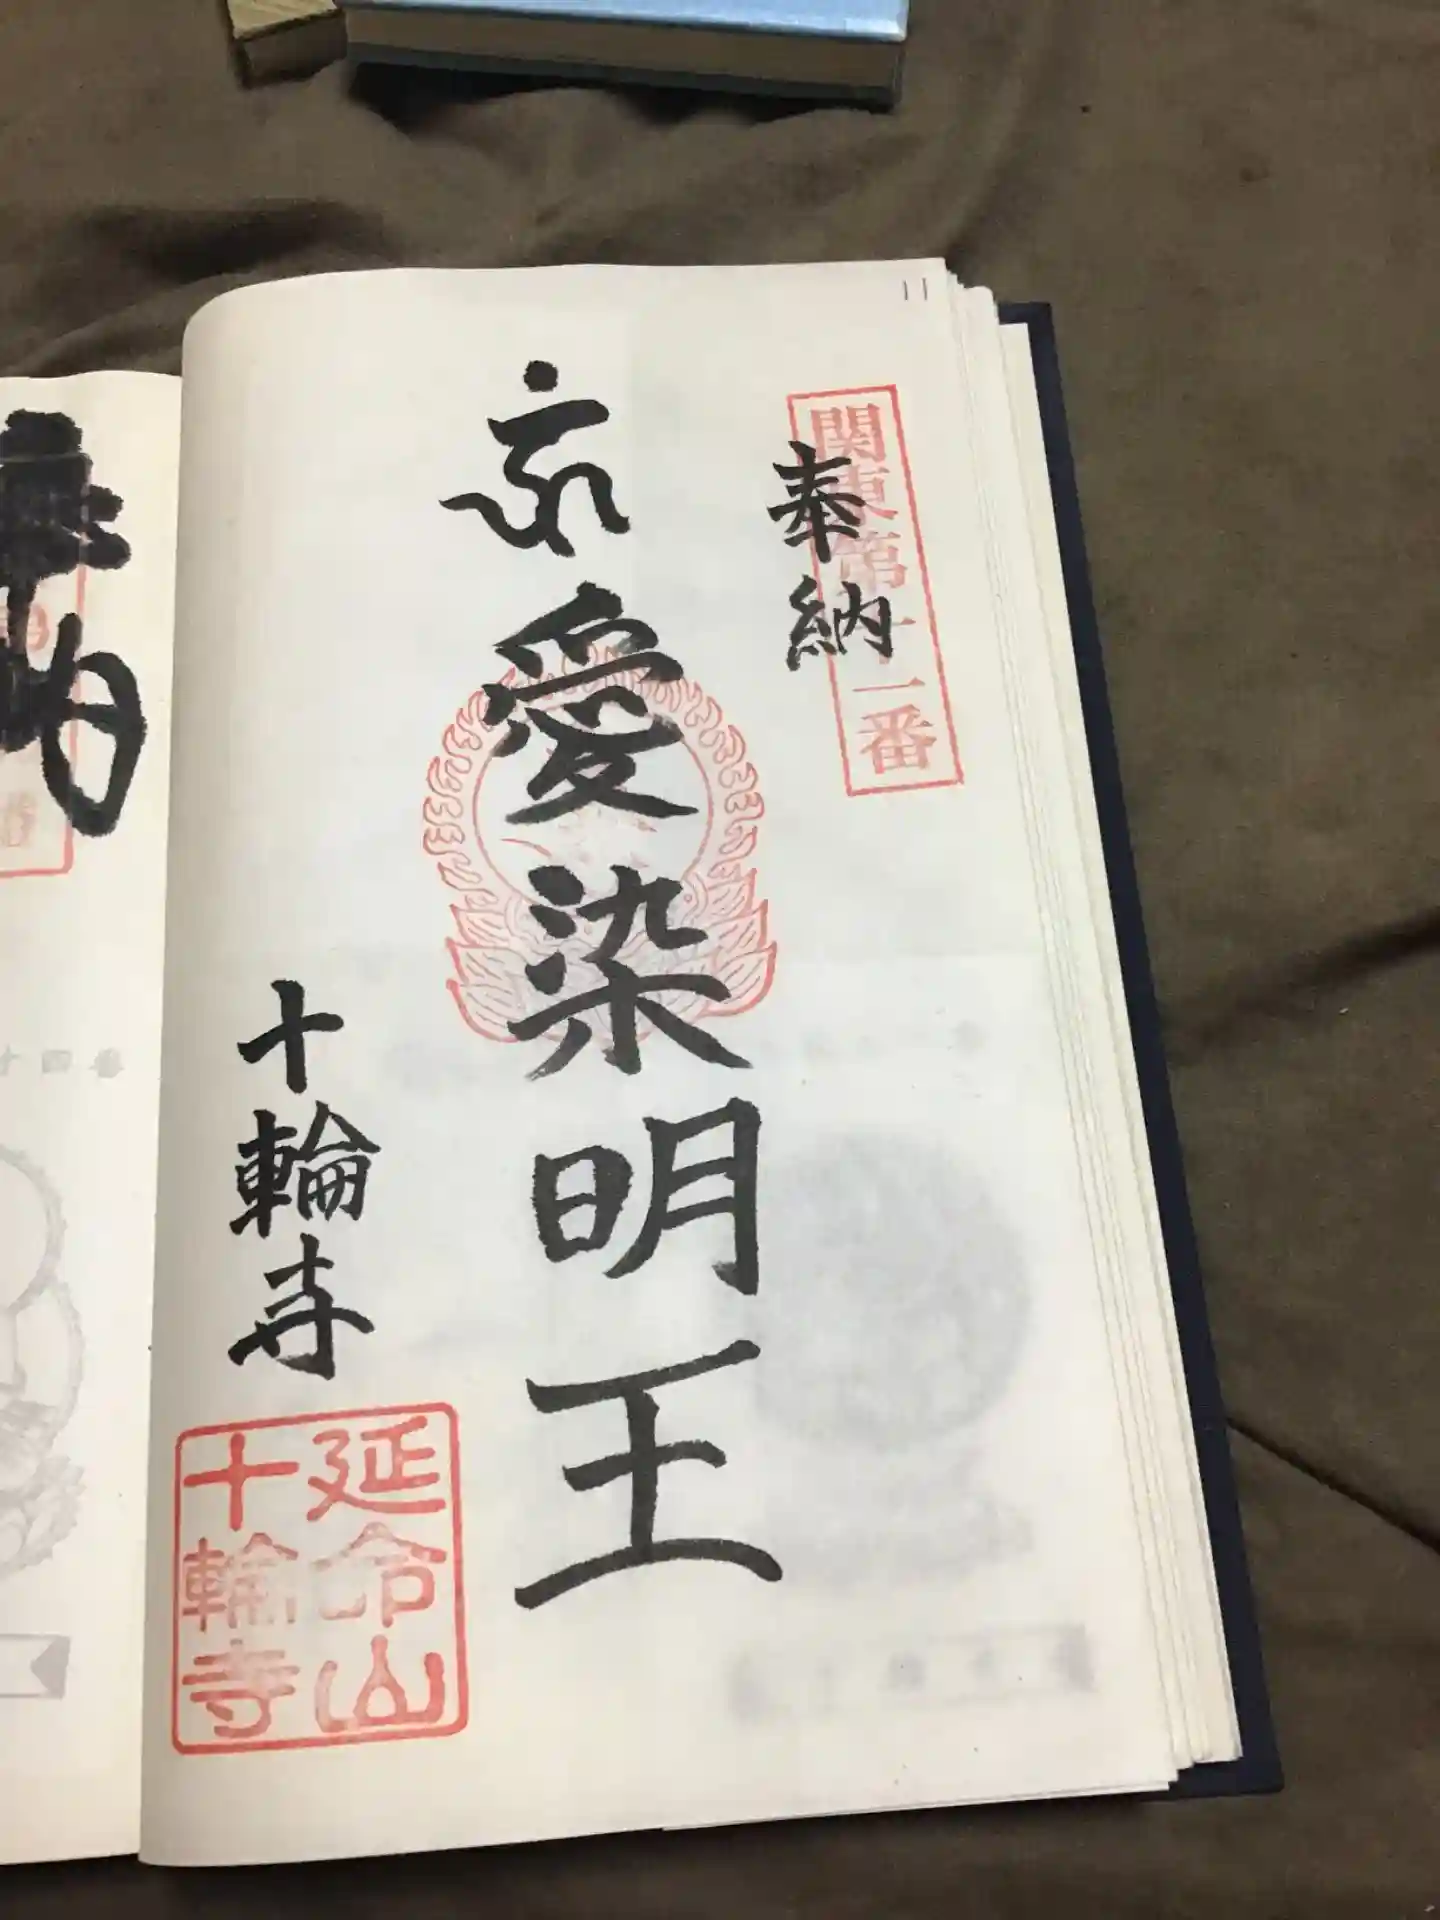 11
関東第十一番
奉納
愛染明王
十輪寺
延命山
十輪寺
納
十四番